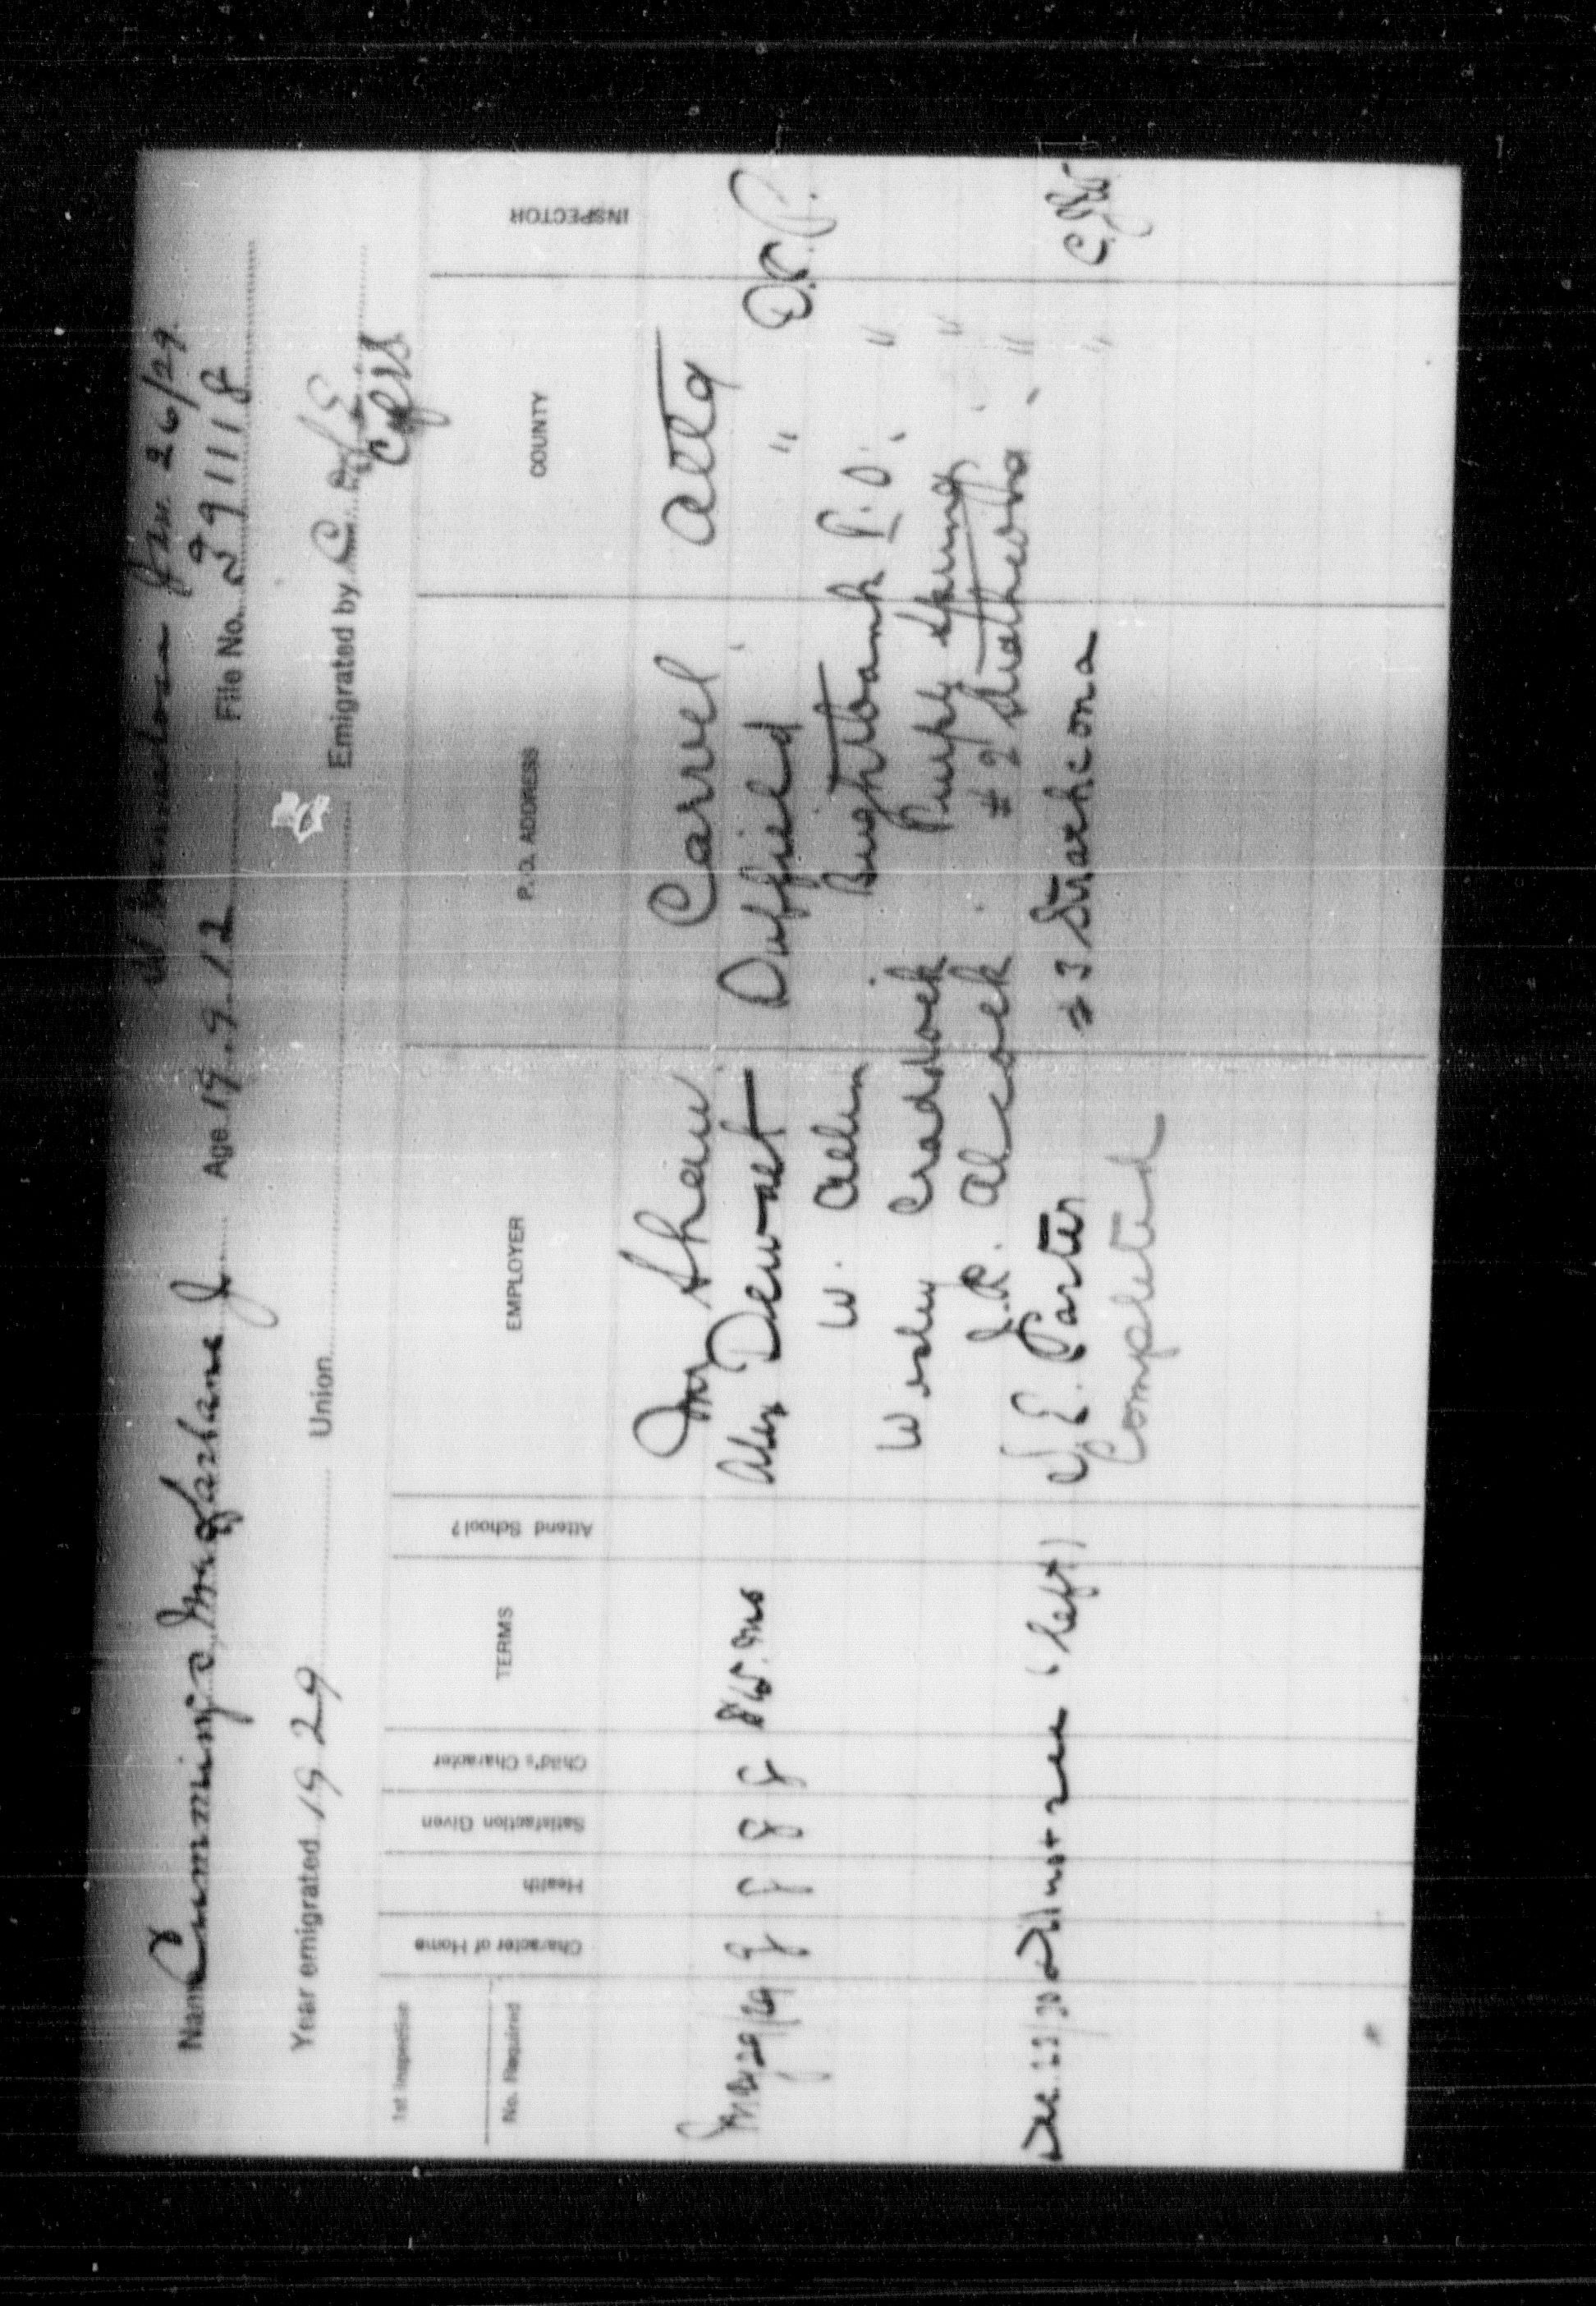 Jan. 26/29
Name Cummings, Macfarlane J. Age 17.9.12 File No. 291118
Year emigrated 1929 Union Emigrated by C.
1st Inspection
No. Required Character of Home Health Satisfaction Given Child's Character TERMS Attend School? EMPLOYER P.O. ADDRESS COUNTY INSPECTOR
Mr Shaw Carvel Alta
May 29/29 g g g g Alex Dewart Duffield " D.S.P.
W. Allen Brightbank P.O. "
Wesley Craddock Purple Springs "
J.R. Alcock #2 Strathcona "
Dec 23/30 Did not see (left) E. Porter #3 Strathcona "
Completed